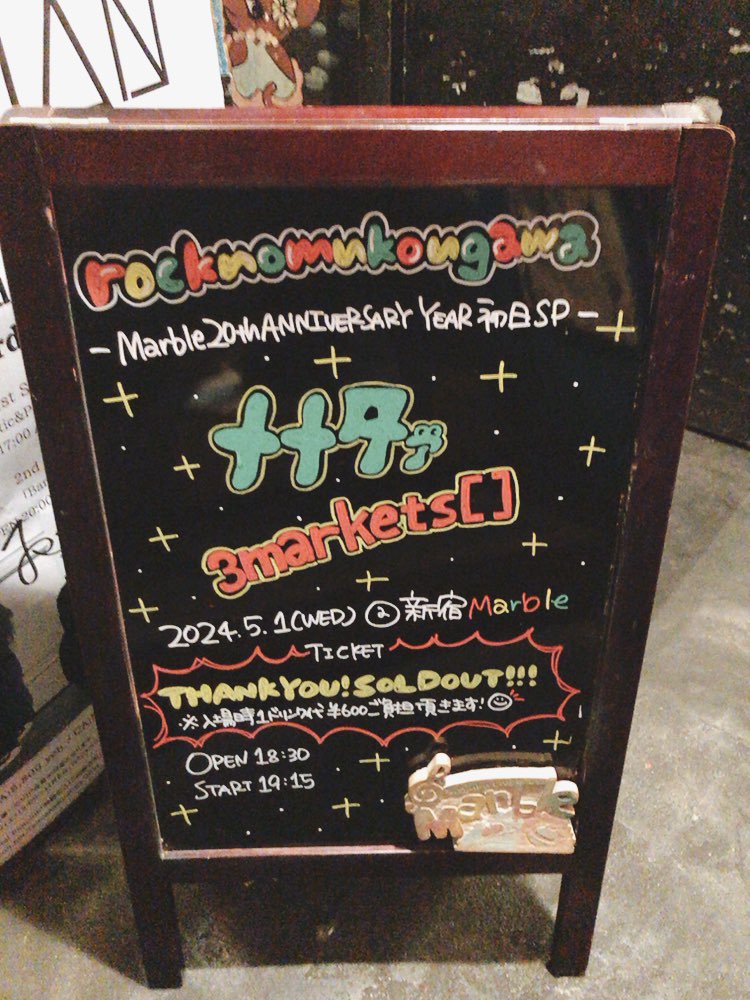 rocknomukougawa
- Marble 20th ANNIVERSARY YEAR 初日SP -
ナナタ
3markets[ ]
2024.5.1(WED) @新宿Marble
TICKET
THANK YOU! SOLDOUT!!!
※入場時1ドリンク代¥600ご負担頂きます!
OPEN 18:30
START 19:15
Marble
2nd